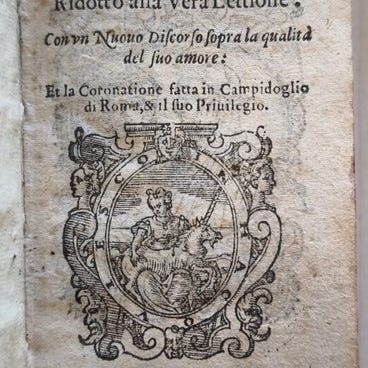 Ridotto alla vera Lettione.
Con vn Nuouo Discorso sopra la qualità
del suo amore:
Et la Coronatione fatta in Campidoglio
di Roma, & il suo Priuilegio.